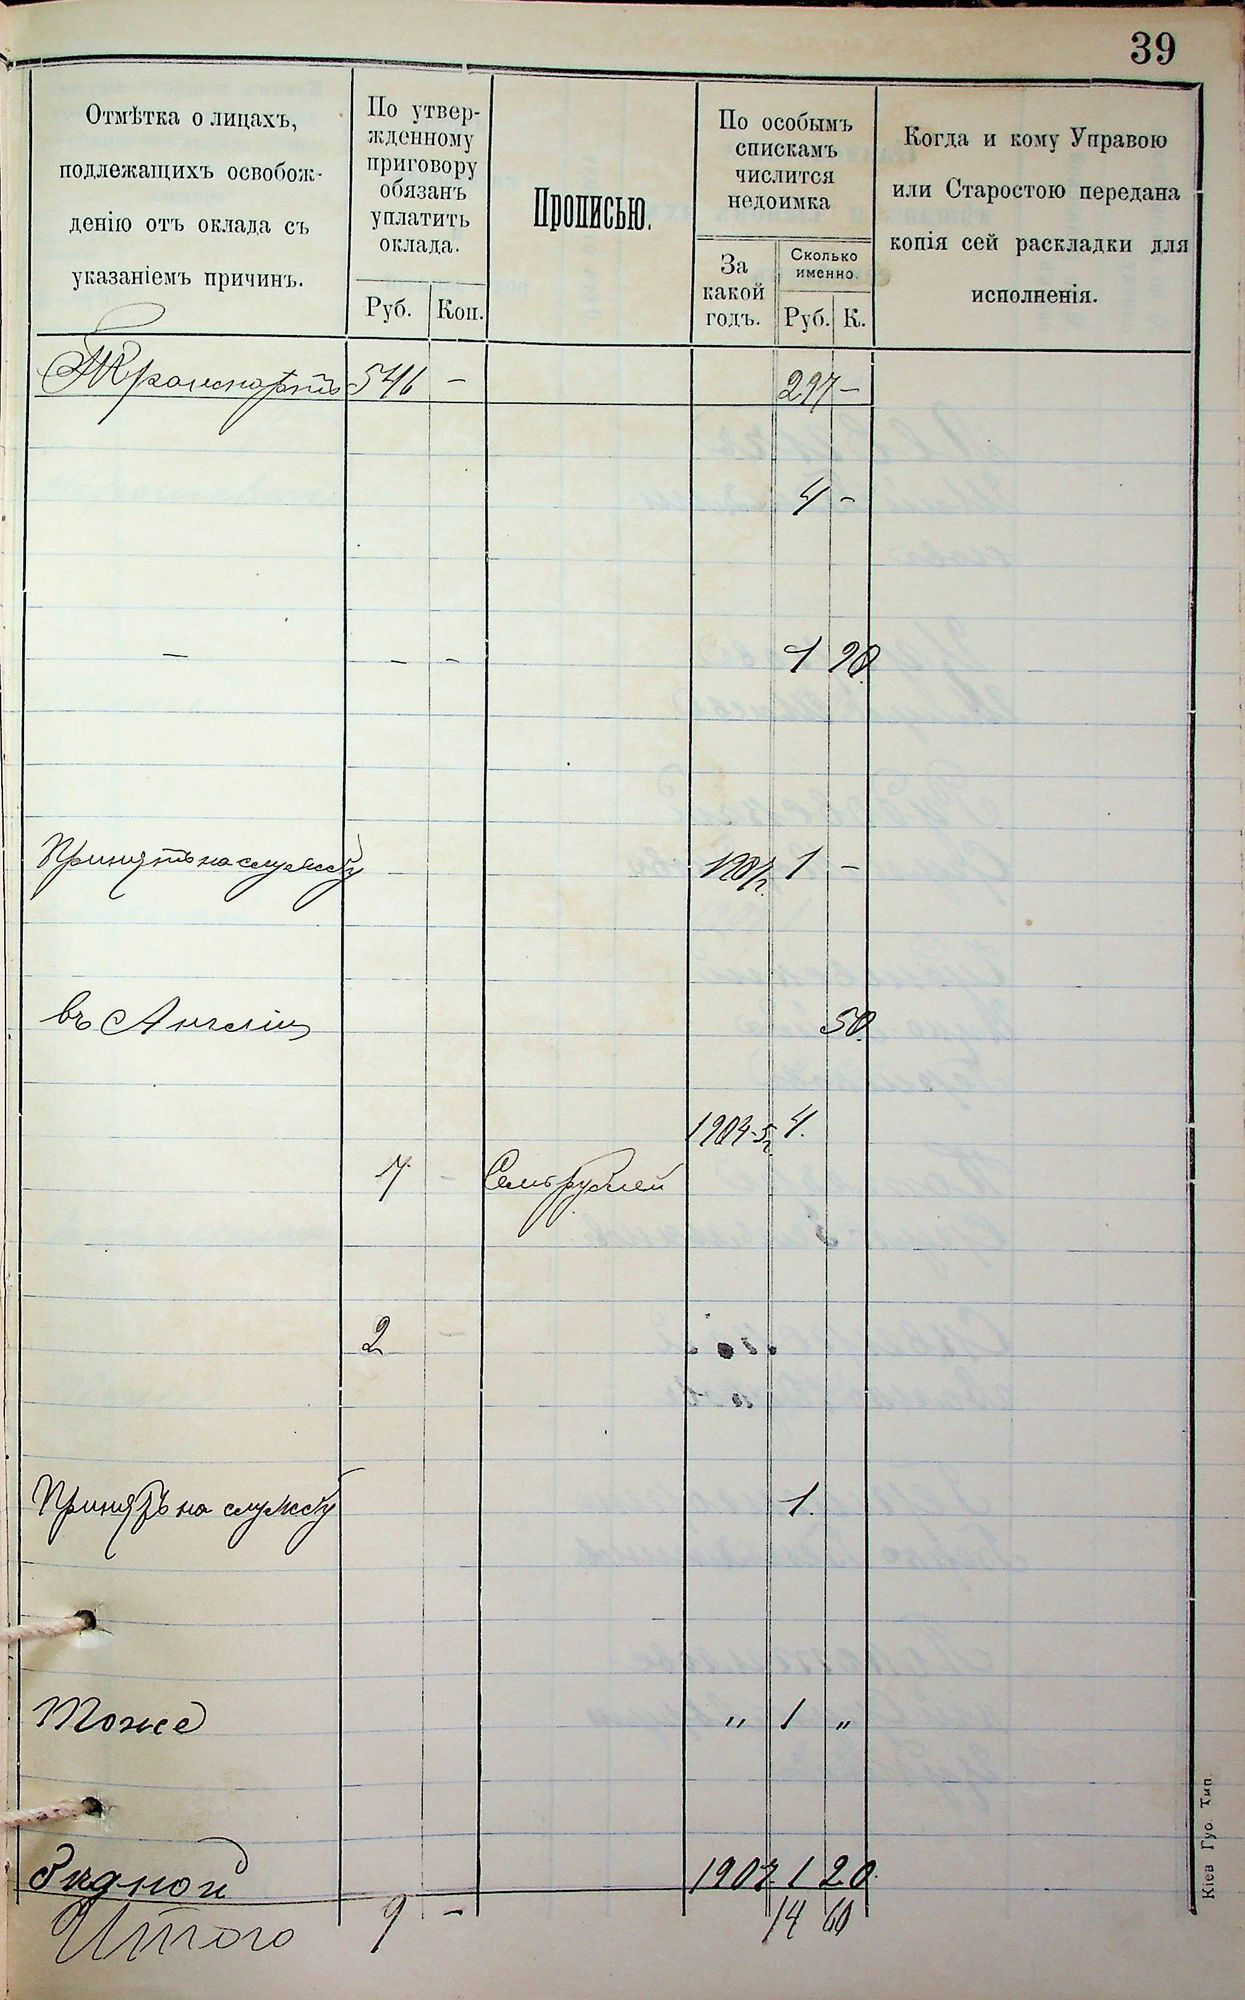 39
Отмѣтка о лицахъ,
подлежащихъ освобож-
денію отъ оклада съ
указаніемъ причинъ.
По утвер-
жденному
приговору
обязанъ
уплатить
оклада.
Руб. Коп.
Прописью.
По особымъ
спискамъ
числится
недоимка
За
какой
годъ.
Сколько
именно.
Руб. К.
Когда и кому Управою
или Старостою передана
копія сей раскладки для
исполненія.
Транспортъ 546 - 297 -
4 -
- - - 1 90
Принятъ на службу 1907г. 1 -
въ Англіи 50
1904-5г. 4.
7 - Семь рублей
2 -
Принятъ на службу 1.
Тоже " 1 "
Бѣдной 1907 1 20
Итого 9 - 14 60
Кіев Губ. Тип.